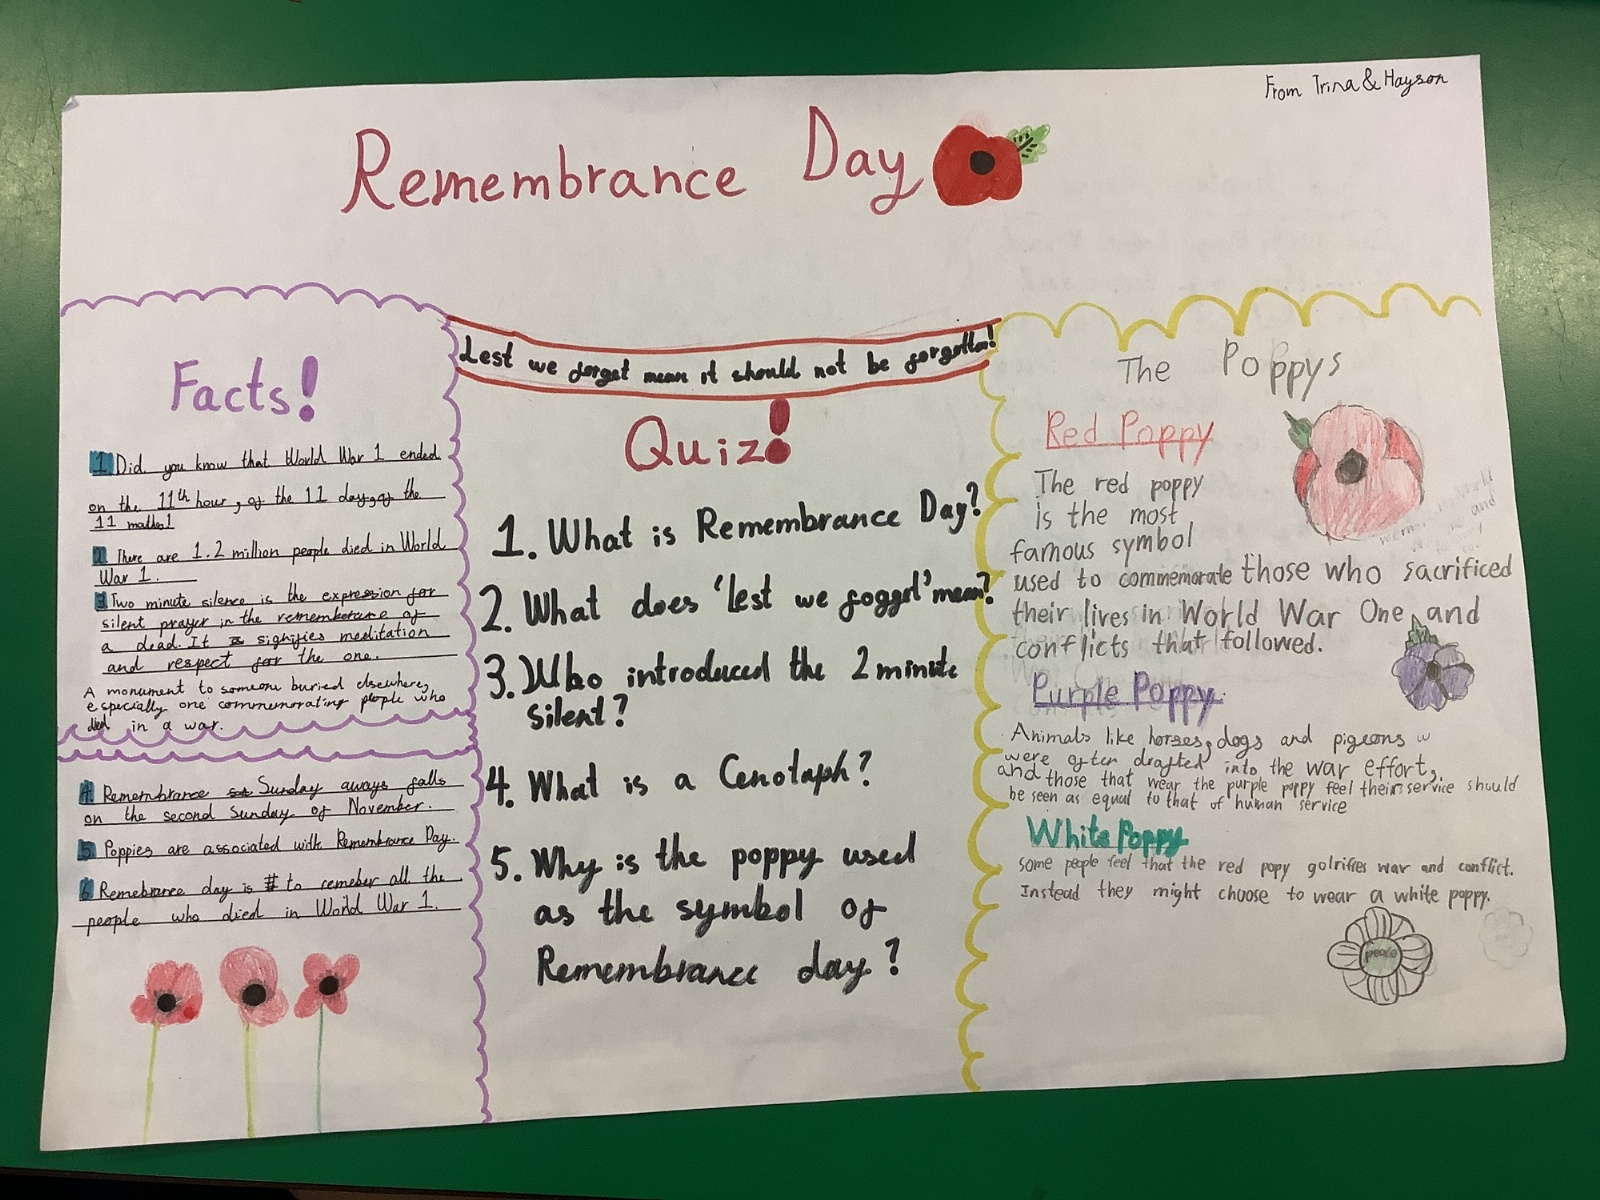 From Trina & Hayson
Remembrance Day
Facts!
1. Did you know that World War 1 ended
on the 11th hour, of the 11 day, of the
11
2. There are 1.2 million people died in World
War 1.
3 Two minute silence is the expression for
silent prayer in the of
a dead. It signifies meditation
and respect for the one.
A monument to someone buried elsewhere,
especially one commemorating people who
died in a war.
4. Remembrance Sunday aways falls
on the second Sunday of November.
5 Poppies are associated with Remembrance Day.
6 Remebrance day is to remeber all the
people who died in World War 1.
Lest we forget mean it should not be forgotten!
Quiz!
1. What is Remembrance Day?
2. What does 'lest we mean?
3. Who introduced the 2 minute
silent?
4. What is a Cenotaph?
5. Why is the poppy used
as the symbol of
Remembrance day?
The Poppys
Red Poppy
The red poppy
is the most
famous symbol
used to commemorate those who sacrificed
their lives in World War One, and
conflicts that followed.
Purple Poppy
Animals like horses, dogs and pigeons w
were often drafted into the war effort,
and those that wear the purple poppy feel their service should
be seen as equal to that of human service
White Poppy
some people feel that the red popy golrifies war and conflict.
Instead they might choose to wear a white poppy.
peace